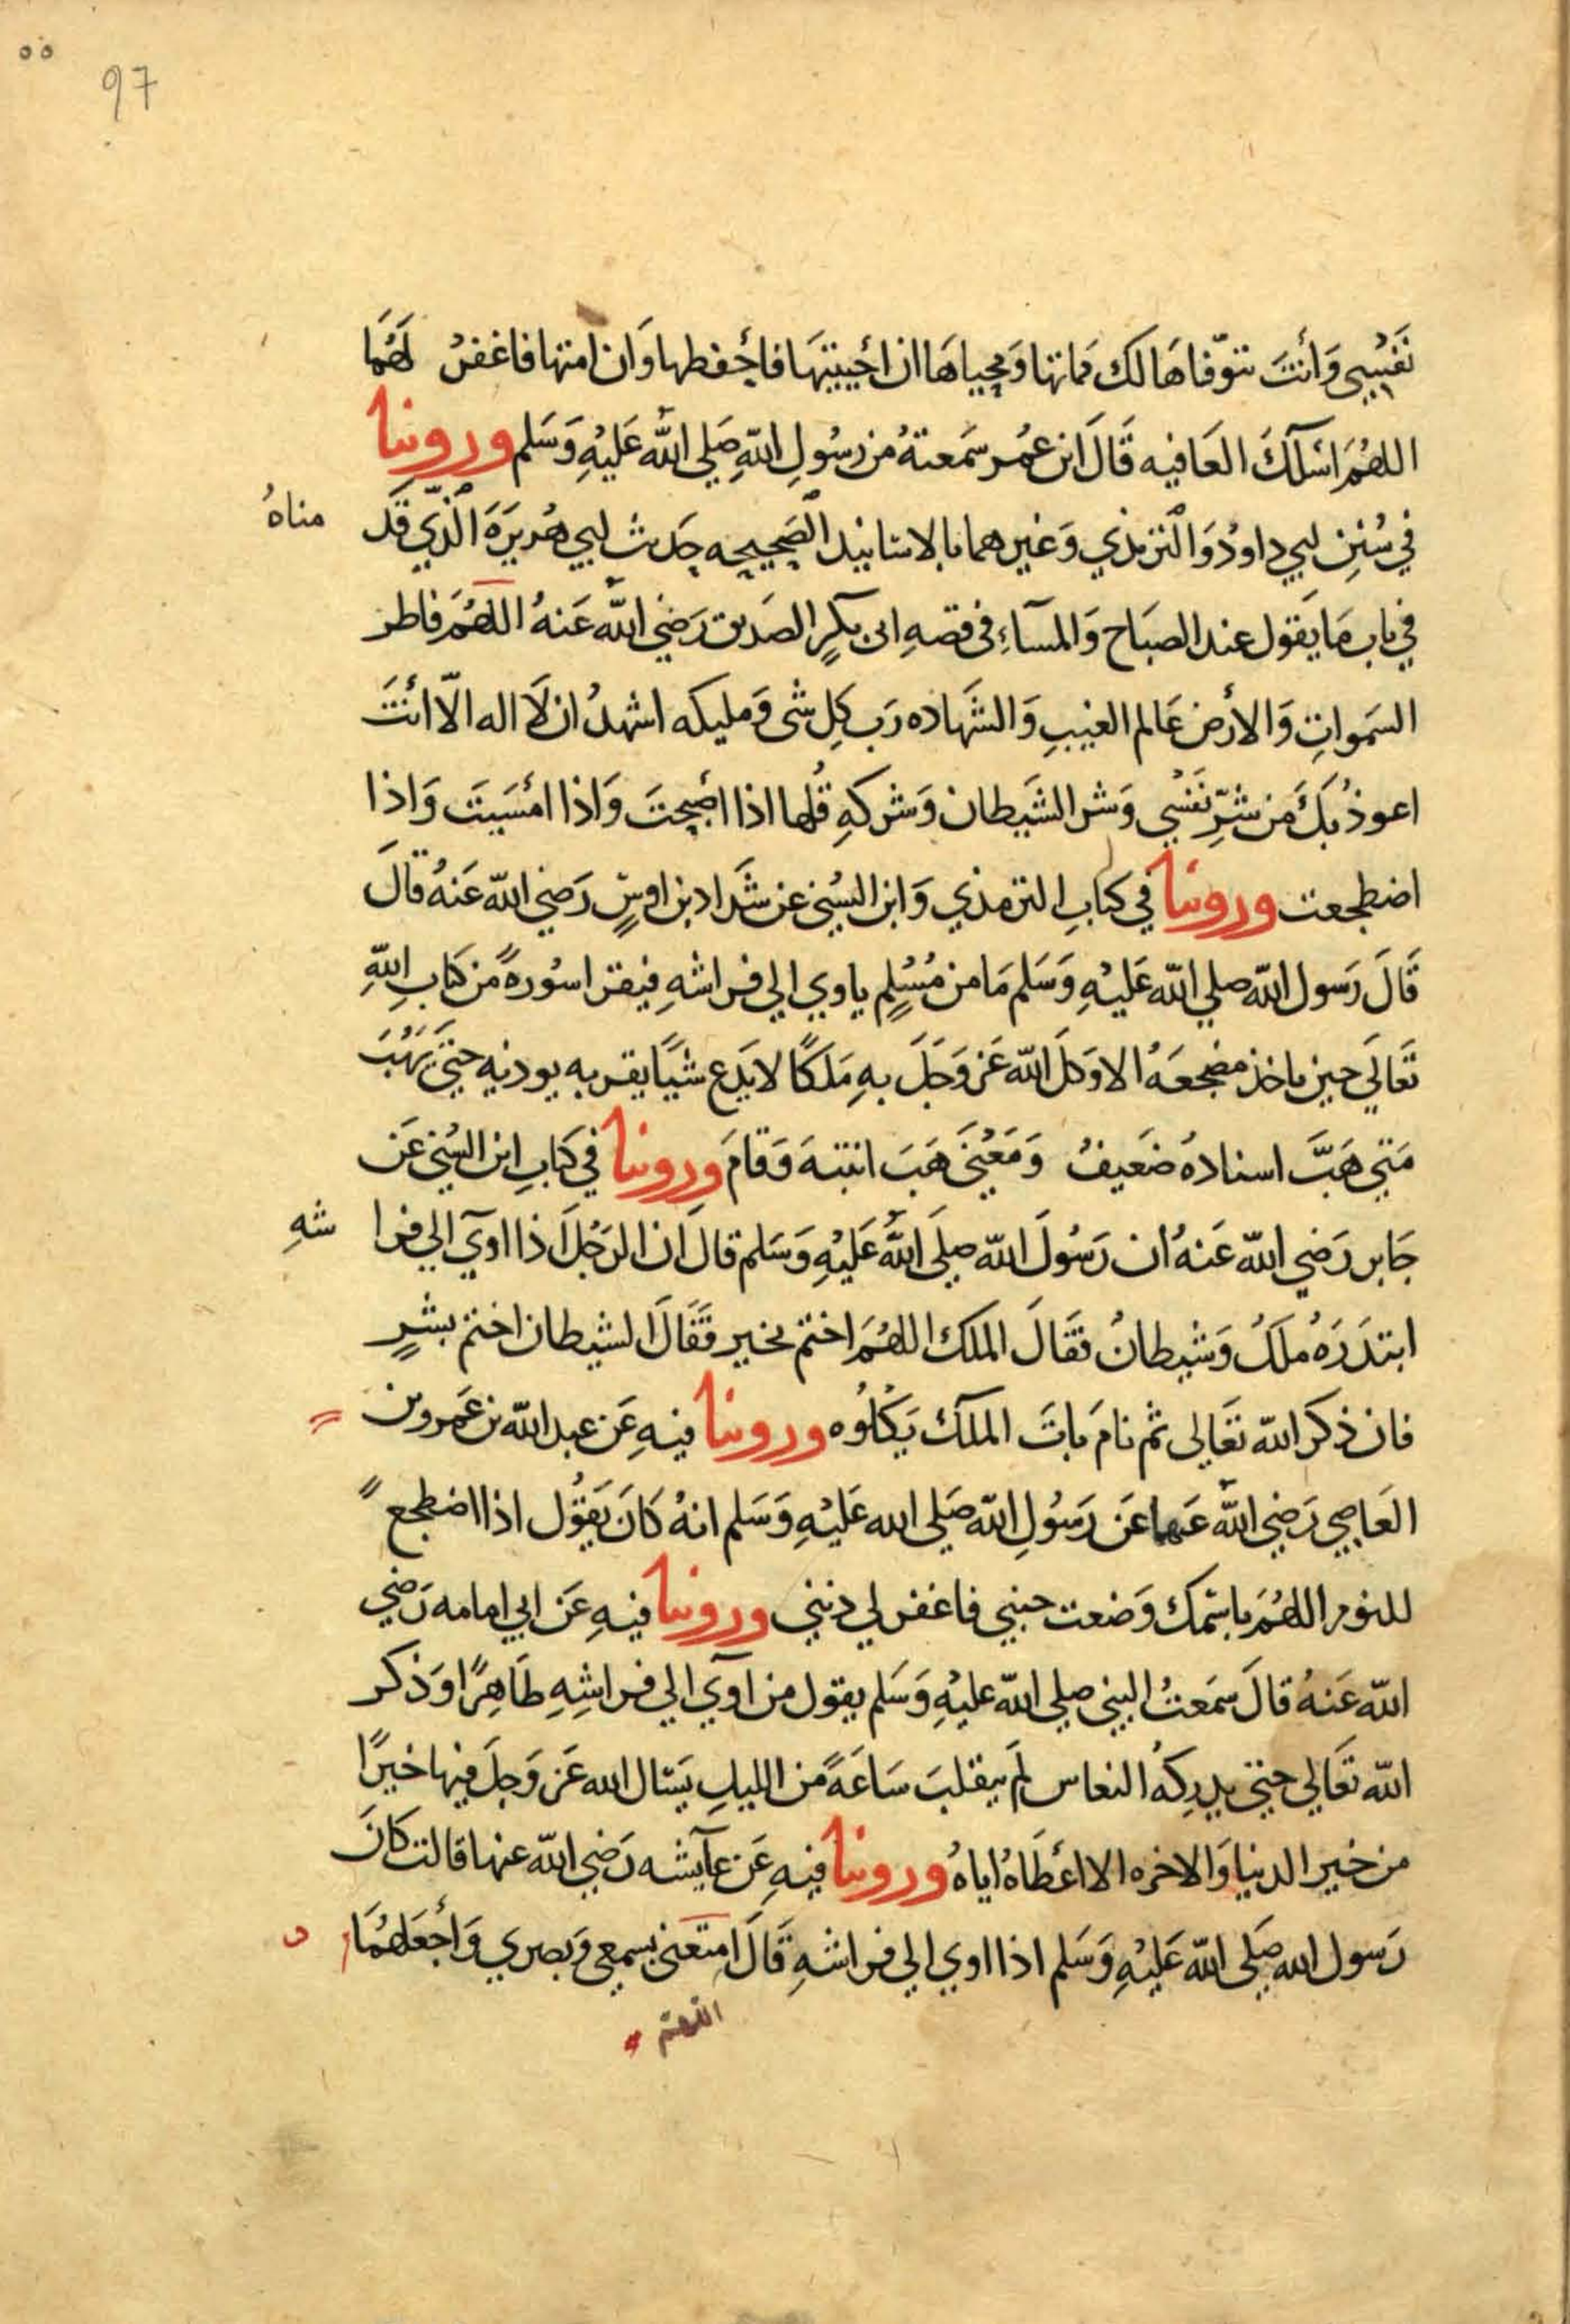 ٥٥
97
نَفْسِي وَأَنْتَ تتوّفاهَا لكَ مَماتها وَمحياهَا ان أحْييتهَا فاحْفظها وَان امتها فاغفرْ لهَا
اللهُمَ اسَلكَ العَافيه قَالَ ابن عُمر سَمعتهُ من رسُولِ اللهِ صَلي اللهُ عَليْهِ وَسَلم وروينا
في سُنَنِ ابي داودُ وَالترمذي وَغيرهما بالاسَانيد الصَحيحه حَديث ابي هُريرَةَ الّذي قَد
مناهُ
في باب مَا يَقول عند الصبَاح وَالمسآءِ في قصهِ ابي بكرٍ الصَديق رَضي اللهُ عَنهُ اللهُمَ فاطر
السَمواتِ وَالأرض عَالم الغيبِ وَالشَهاده رَب كلِ شى وَمليكه اشهدُ ان لَا اله الّا انْتَ
اعوذُ بكَ مَن شرِّ نَفْسي وَشر الشَيطان وَشركهِ قُلها اذا اصْبحتَ وَاذا امْسَيتَ وَاذا
اضطجعت وروينا في كتابِ الترمذي وَابن السُني عن شَداد بن اوسٍ رَضي اللهُ عَنهُ قالَ
قَالَ رَسول اللهِ صلي اللهُ عَليْهِ وَسَلم مَا من مُسْلِمٍ ياوي الي فراشهِ فيقرا سُورهً من كتابِ اللهِ
تَعَالَي حين ياخذ مضجعَهُ الا وَكلَ اللهُ عَز وَجَلَ بهِ مَلَكًا لا يَدع شيًا يقربه يوذيه حتيَ يَهُبَ
مَتي هَبَّ اسنادهُ ضَعيفُ وَمَعْني هَبَ انتبَهَ وَقامَ وروينا في كتابِ ابن السُني عَن
جَابر رَضي اللهُ عَنهُ ان رَسُولَ اللهِ صلَي اللهُ عَليْهِ وَسَلم قالَ ان الرَجُلَ اذا اويَ الي فرا
شهِ
ابتدَرَهُ مَلَكُ وَشيطانُ فقَالَ الملَك اللهُمَ اختم بخير فقَالَ الشيطان اختم بشرٍ
فان ذكرَ اللهَ تعَالى ثم نامَ باتَ الملَك يَكْلُوه وروينا فيهِ عَن عبد الله بن عَمرو بن
العَاصي رَضي اللهُ عَنهما عَن رَسُولِ اللهِ صَلي الله عَليْهِ وَسَلم انهُ كَانَ يَقُول اذا اضطجع
للنوم اللهُمَ باسْمك وَضعت جنبي فاغفر لي ذنبي وروينا فيهِ عَن ابي امامه رَضي
اللهُ عَنهُ قالَ سَمَعتُ النبي صلي اللهُ عليْهِ وَسَلم يقول من آويَ الي فراشِهِ طَاهِرًا وَذكر
اللهَ تَعَالي حتي يدرِكهُ النعاس لَم يتقلبَ سَاعَةً من الليلِ يَسَال الله عَز وَجلَ فيها خيرًا
من خير الدنيا وَالاخره الا اعْطَاهُ اياهُ وروينا فيهِ عَن عآيشه رَضي اللهُ عنها قالت كَانَ
رَسول اللهِ صَلي اللهُ عَليْهِ وَسَلم اذا اوي الي فراشهِ قَالَ امتعني بسمعي وَبصري وَأجْعَلهُمَا
اللهم